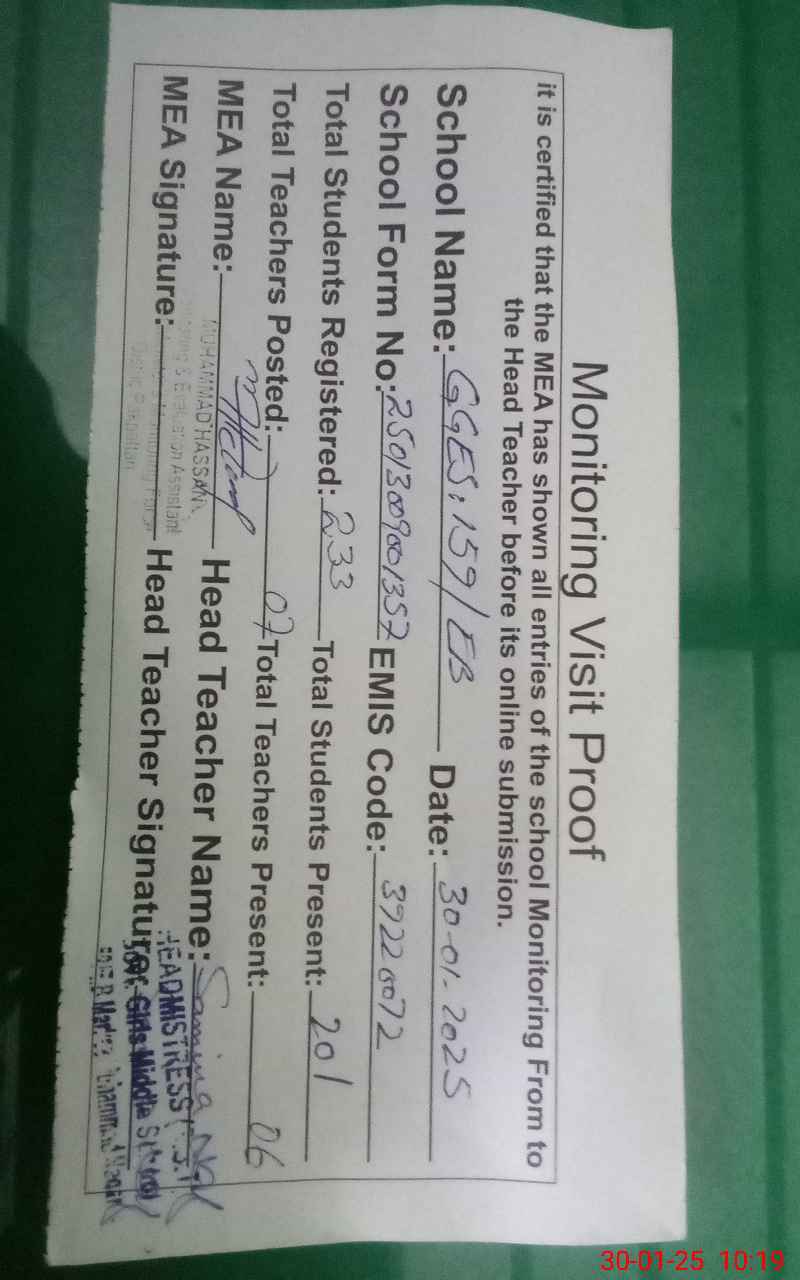 Monitoring Visit Proof
it is certified that the MEA has shown all entries of the school Monitoring From to
the Head Teacher before its online submission.
School Name: GGES. 159/EB Date: 30-01-2025
School Form No: 25013009001357 EMIS Code: 39220072
Total Students Registered: 233 Total Students Present: 201
Total Teachers Posted: 07 Total Teachers Present: 06
MEA Name: Head Teacher Name: Samina
MUHAMMAD HASSAN
MEA Signature: Head Teacher Signature:
& Evaluation Assistant
HEADMISTRESS
Govt. Girls Middle School
30-01-25 10:19